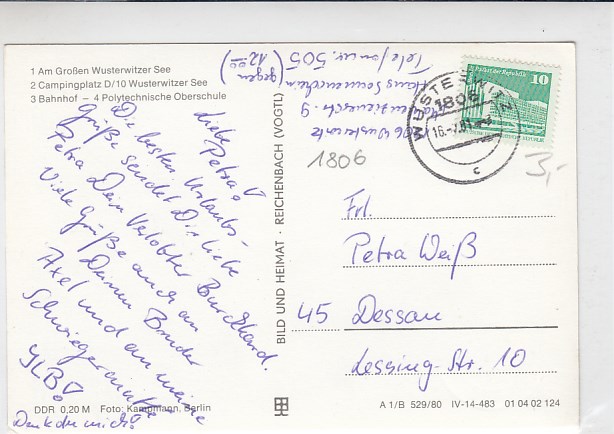 1 Am Großen Wusterwitzer See
2 Campingplatz D/10 Wusterwitzer See
3 Bahnhof – 4 Polytechnische Oberschule
Liebe
Petra!
Die besten Urlaubs-
grüße sendet Dir liebe
Petra Dein Verlobter Burkhard.
Viele Grüße auch an
Deinen Bruder
Axel und an meine
Schwiegermutter
YLB!
Denkst du an mich?
DDR 0,20 M Foto: Kampmann, Berlin
BILD UND HEIMAT · REICHENBACH (VOGTL)
Telefonnr. 505 (gegen 12.00)
1806 Wusterwitz
WUSTERWITZ
1806
16.-7.81
c
Palast der Republik 10
1806
3,-
Frl.
Petra Weiß
45 Dessau
Lessing-Str. 10
A 1/B 529/80 IV-14-483 01 04 02 124